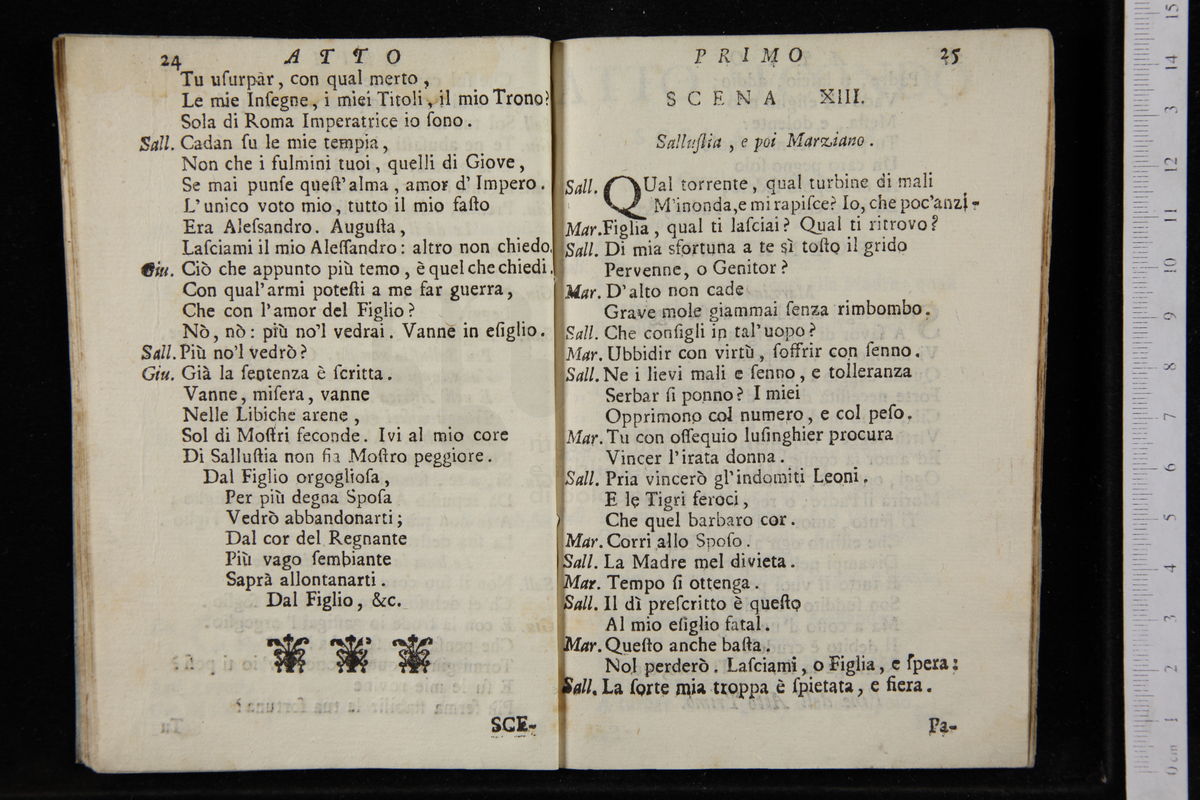 24 ATTO
Tu uſurpàr, con qual merto,
Le mie Inſegne, i miei Titoli, il mio Trono?
Sola di Roma Imperatrice io ſono.
Sall. Cadan ſu le mie tempia,
Non che i fulmini tuoi, quelli di Giove,
Se mai punſe queſt'alma, amor d' Impero.
L' unico voto mio, tutto il mio faſto
Era Aleſsandro. Auguſta,
Laſciami il mio Aleſſandro: altro non chiedo.
Giu. Ciò che appunto più temo, è quel che chiedi.
Con qual'armi poteſti a me far guerra,
Che con l'amor del Figlio?
Nò, nò: più no'l vedrai. Vanne in eſiglio.
Sall. Più no'l vedrò?
Giu. Già la ſentenza è ſcritta.
Vanne, miſera, vanne
Nelle Libiche arene,
Sol di Moſtri feconde. Ivi al mio core
Di Salluſtia non ſia Moſtro peggiore.
Dal Figlio orgoglioſa,
Per più degna Spoſa
Vedrò abbandonarti;
Dal cor del Regnante
Più vago ſembiante
Saprà allontanarti.
Dal Figlio, &c.
SCE-
PRIMO 25
SCENA XIII.
Salluſtia, e poi Marziano.
Sall. QUal torrente, qual turbine di mali
M'inonda, e mi rapiſce? Io, che poc'anzi-
Mar. Figlia, qual ti laſciai? Qual ti ritrovo?
Sall. Di mia sfortuna a te sì toſto il grido
Pervenne, o Genitor?
Mar. D'alto non cade
Grave mole giammai ſenza rimbombo.
Sall. Che conſigli in tal'uopo?
Mar. Ubbidir con virtù, ſoffrir con ſenno.
Sall. Ne i lievi mali e ſenno, e tolleranza
Serbar ſi ponno? I miei
Opprimono col numero, e col peſo.
Mar. Tu con oſſequio luſinghier procura
Vincer l'irata donna.
Sall. Pria vincerò gl'indomiti Leoni,
E le Tigri feroci,
Che quel barbaro cor.
Mar. Corri allo Spoſo.
Sall. La Madre mel divieta.
Mar. Tempo ſi ottenga.
Sall. Il dì preſcritto è queſto
Al mio eſiglio fatal.
Mar. Queſto anche baſta.
Nol perderò. Laſciami, o Figlia, e ſpera:
Sall. La ſorte mia troppa è ſpietata, e fiera.
Pa-
0 cm 1 2 3 4 5 6 7 8 9 10 11 12 13 14 15